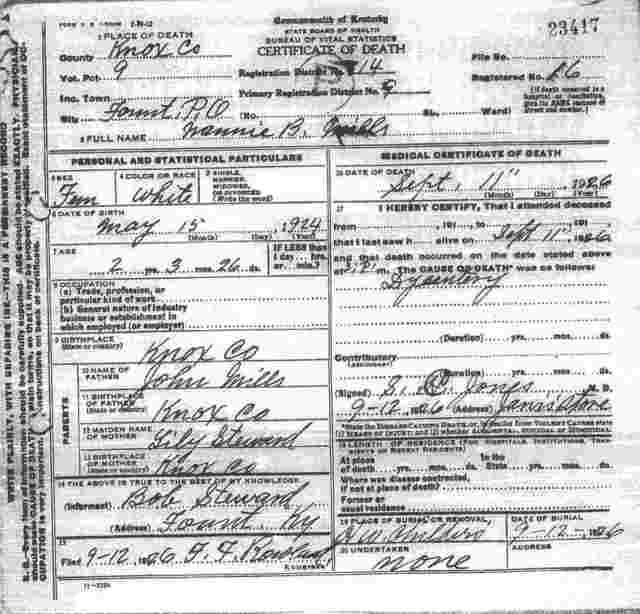 Commonwealth of Kentucky
STATE BOARD OF HEALTH
BUREAU OF VITAL STATISTICS
CERTIFICATE OF DEATH
23417
1 PLACE OF DEATH
County Knox Co
Vot. Pct 9
Inc. Town
City Fount, P.O (No. St., Ward)
Registration District No. 14
Primary Registration District No. 9
File No.
Registered No. 26
(If death occurred in a hospital or institution, give its NAME instead of street and number.)
2 FULL NAME Nannie B. Mills
PERSONAL AND STATISTICAL PARTICULARS
3 SEX Fem
4 COLOR OR RACE White
5 SINGLE, MARRIED, WIDOWED, OR DIVORCED (Write the word)
6 DATE OF BIRTH
May 15, 1924
(Month) (Day) (Year)
7 AGE
2 yrs. 3 mos. 26 ds.
IF LESS than 1 day hrs. or min.?
8 OCCUPATION
(a) Trade, profession, or
particular kind of work
(b) General nature of industry
business or establishment in
which employed (or employer)
9 BIRTHPLACE
(State or country) Knox Co
PARENTS
10 NAME OF FATHER John Mills
11 BIRTHPLACE OF FATHER
(State or country) Knox Co
12 MAIDEN NAME OF MOTHER Lily Steward
13 BIRTHPLACE OF MOTHER
(State or country) Knox Co
14 THE ABOVE IS TRUE TO THE BEST OF MY KNOWLEDGE
(Informant) Bob Steward
(Address) Fount, Ky
15
Filed 9-12, 1926
REGISTRAR
11-3184
MEDICAL CERTIFICATE OF DEATH
16 DATE OF DEATH
Sept. 11", 1926
(Month) (Day) (Year)
17 I HEREBY CERTIFY, That I attended deceased
from, 191, to, 191,
that I last saw h alive on Sept 11", 1926
and that death occurred on the date stated above
at m. The CAUSE OF DEATH* was as follows:
Dysentery
(Duration) yrs. mos. ds.
Contributory
(Duration) yrs. mos. ds.
(Signed) S. C. Jones M. D.
9-12 1926 (Address)
*State the DISEASE CAUSING DEATH, or, in deaths from VIOLENT CAUSES state
(1) MEANS OF INJURY; and (2) whether ACCIDENTAL, SUICIDAL or HOMICIDAL.
18 LENGTH OF RESIDENCE (FOR HOSPITALS, INSTITUTIONS, TRANSIENTS OR RECENT RESIDENTS)
At place of death yrs. mos. ds. In the State yrs. mos. ds.
Where was disease contracted,
if not at place of death?
Former or
usual residence
19 PLACE OF BURIAL OR REMOVAL
DATE OF BURIAL
9-12-1926
20 UNDERTAKER
none
ADDRESS